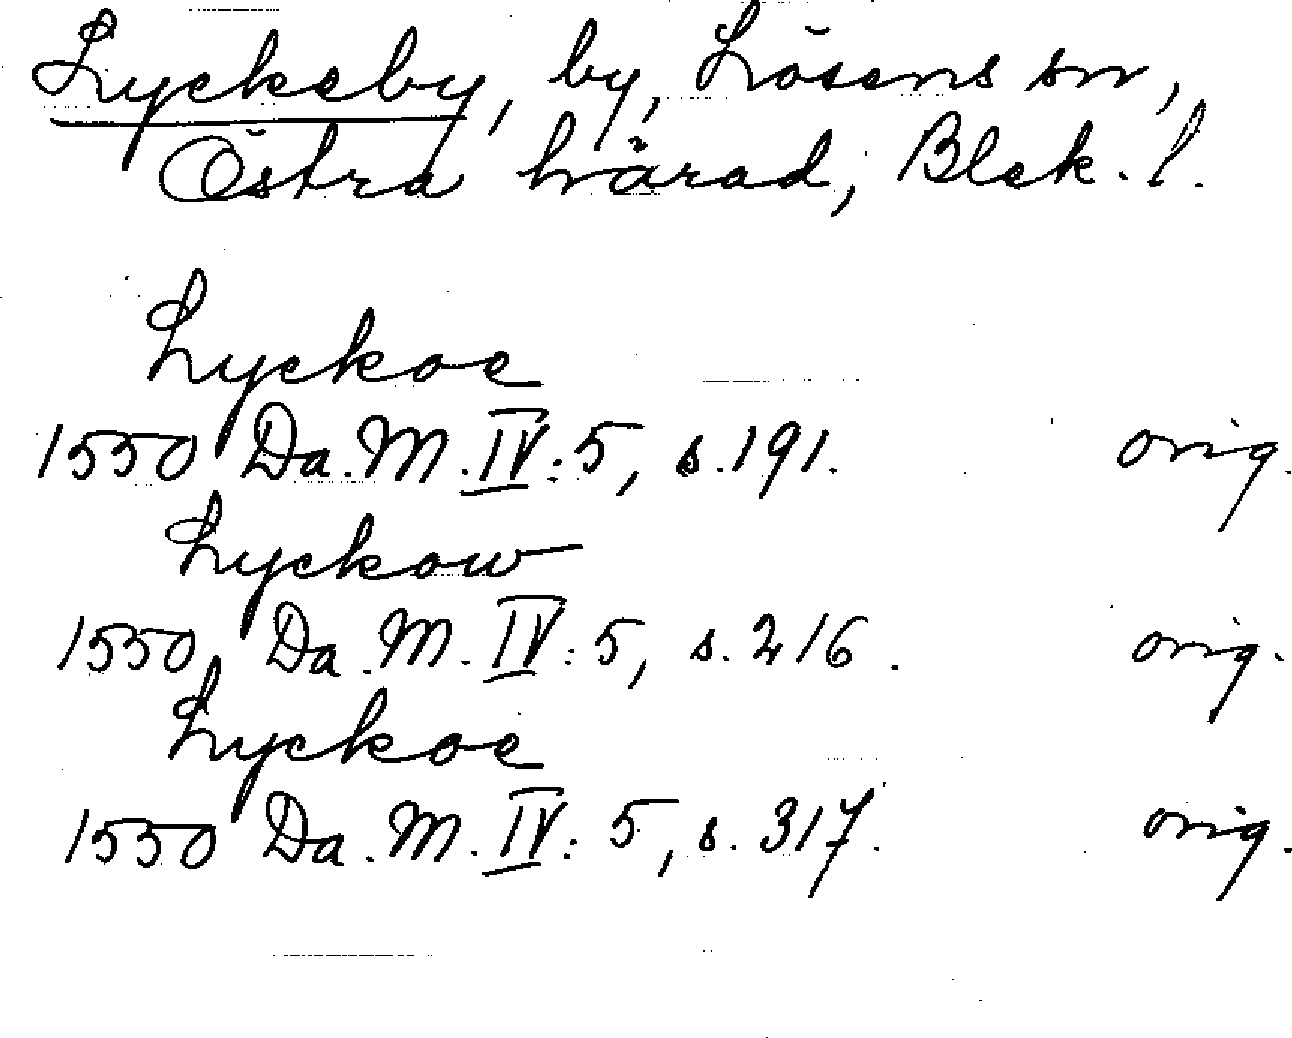 Lyckeby, by, Lösens sn,
Östra härad, Blek. l.
Lyckoe
1550 Da. M. IV: 5, s. 191. orig.
Lyckow
1550 Da. M. IV: 5, s. 216. orig.
Lyckoe
1550 Da. M. IV: 5, s. 317. orig.